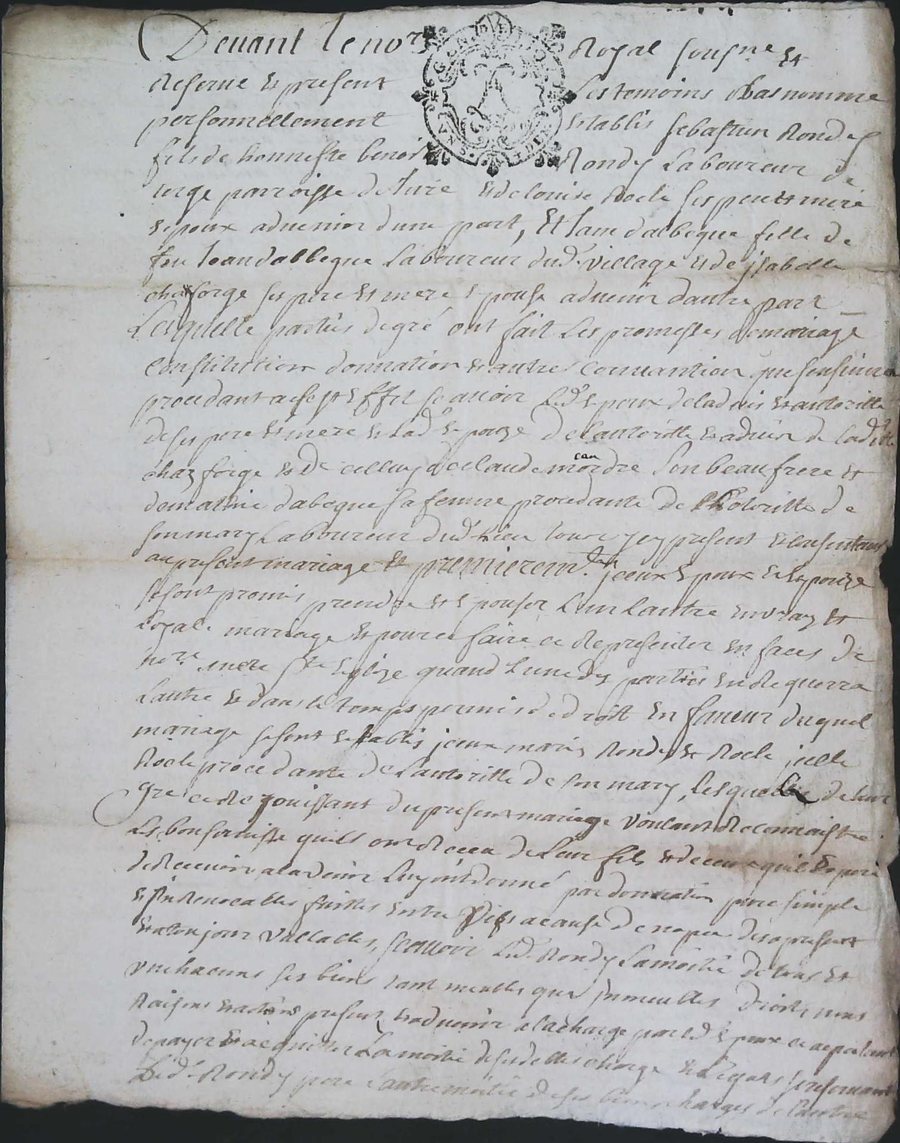 Devant le no.re Royal sousne et
Reserve et present Les temoins Bas nomme
personnellement establis sebastien Rondy
fils de honneste benoist Rondy Laboureur de
parroisse de et de louise Rocle ses pere et mere
espoux advenir dune part, Et dalbeque fille de
feu dalbegue Laboureur dud. village et de jsabelle
chazforge ses pere et mere espouse advenir dautre part
Lesquelle parties de gré ont fait Les promesses de mariage
Constitution donnation et autres Convantion que
procedant scavoir Led. espoux de ladvis et autoritte
de ses pere et mere et lad. espouze de lautoritte et advis de lad.
chazforge et de celluy de claude mordre son beau frere et
de dalbeque sa femme procedante de Lhotoritte de
son mary Laboureur dud. Lieu tous jcy present et consentant
au present mariage et premierem.t jceux espoux et espouze
se sont promis prendre et espouser Lun Lautre en vray et
Loyale mariage et pour ce faire ce Representer en faces de
no.re mere s.te Eglize quand Lune des parties en Requerra
Lautre et dans le temps permis de droit En faveur duquel
mariage se sont establis jceux mariés Rondy et Rocle jcelle
Rocle procedante de Lautoritte de son mary, Lesquelle de leur
gre ce Rejouissant du present mariage voulant Reconnaistre
Les bons servisse quils ont Receu de Leur fils et de ceux quil Espere
de Recevoir a ladvenir Luy ont donné par donnation pure simple
et jrrevocables faittes entre vifs a cause de nopce des apresent
et a toujour vallables, scavoir Led. Rondy La moitié de tous et
un chacuns ses biens tant meubles que jmmeubles droits noms
Raisons et actions present et advenir a la charge par led. espoux
de payer et acquitter La moitié de ses dettes charge et Legats se reservant
Led. Rondy pere Lautre moitié de ses biens charges de